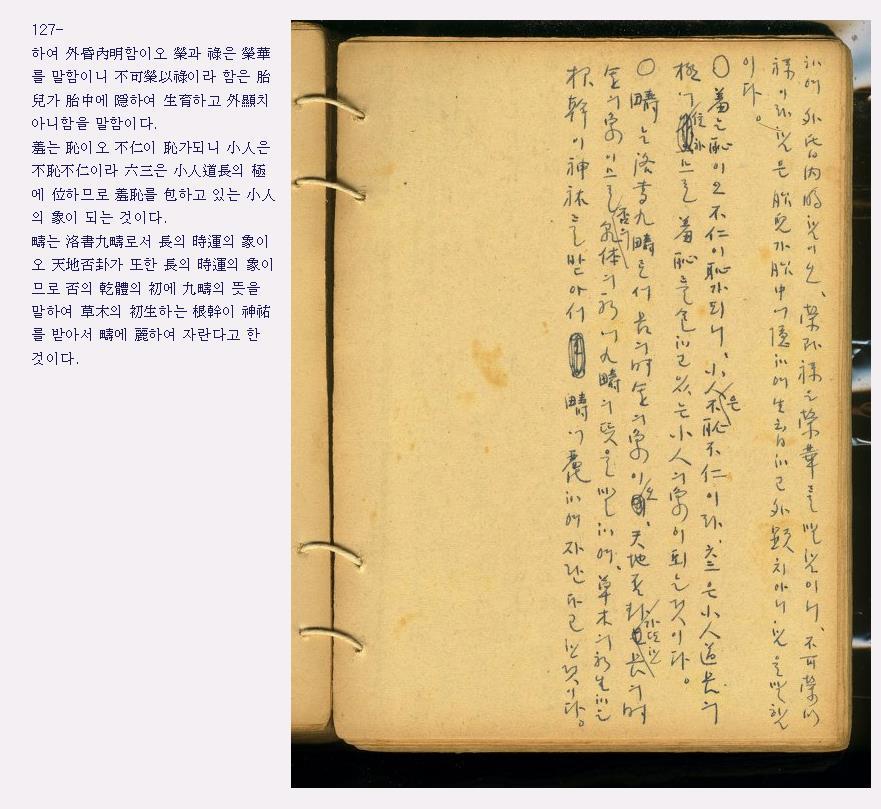 127-
하여 外昏內明함이오 榮과 祿은 榮華
를 말함이니 不可榮以祿이라 함은 胎
兒가 胎中에 隱하여 生育하고 外顯치
아니함을 말함이다.
羞는 恥이오 不仁이 恥가되니 小人은
不恥不仁이라 六三은 小人道長의 極
에 位하므로 羞恥를 包하고 있는 小人
의 象이 되는 것이다.
疇는 洛書九疇로서 長의 時運의 象이
오 天地否卦가 또한 長의 時運의 象이
므로 否의 乾體의 初에 九疇의 뜻을
말하여 草木의 初生하는 根幹이 神祐
를 받아서 疇에 麗하여 자란다고 한
것이다.
하여 外昏內明함이오、榮과 祿은 榮華를 말함이니、不可榮以
祿이라 함은 胎兒가 胎中에 隱하여 生育하고 外顯치아니함을 말함
이다。
○ 羞는 恥이오 不仁이 恥가되니、小人은 不恥不仁이라、六三은 小人道長의
極에 位하므로 羞恥를 包하고 있는 小人의 象이 되는것이다。
○ 疇는 洛書九疇로서 長의 時運의 象이오、天地否卦가 또한 長의 時
運의 象이므로 否의 乾体의 初에 九疇의 뜻을 말하여、草木의 初生하는
根幹이 神祐를 받아서 疇에 麗하여 자란다고 한것이다。